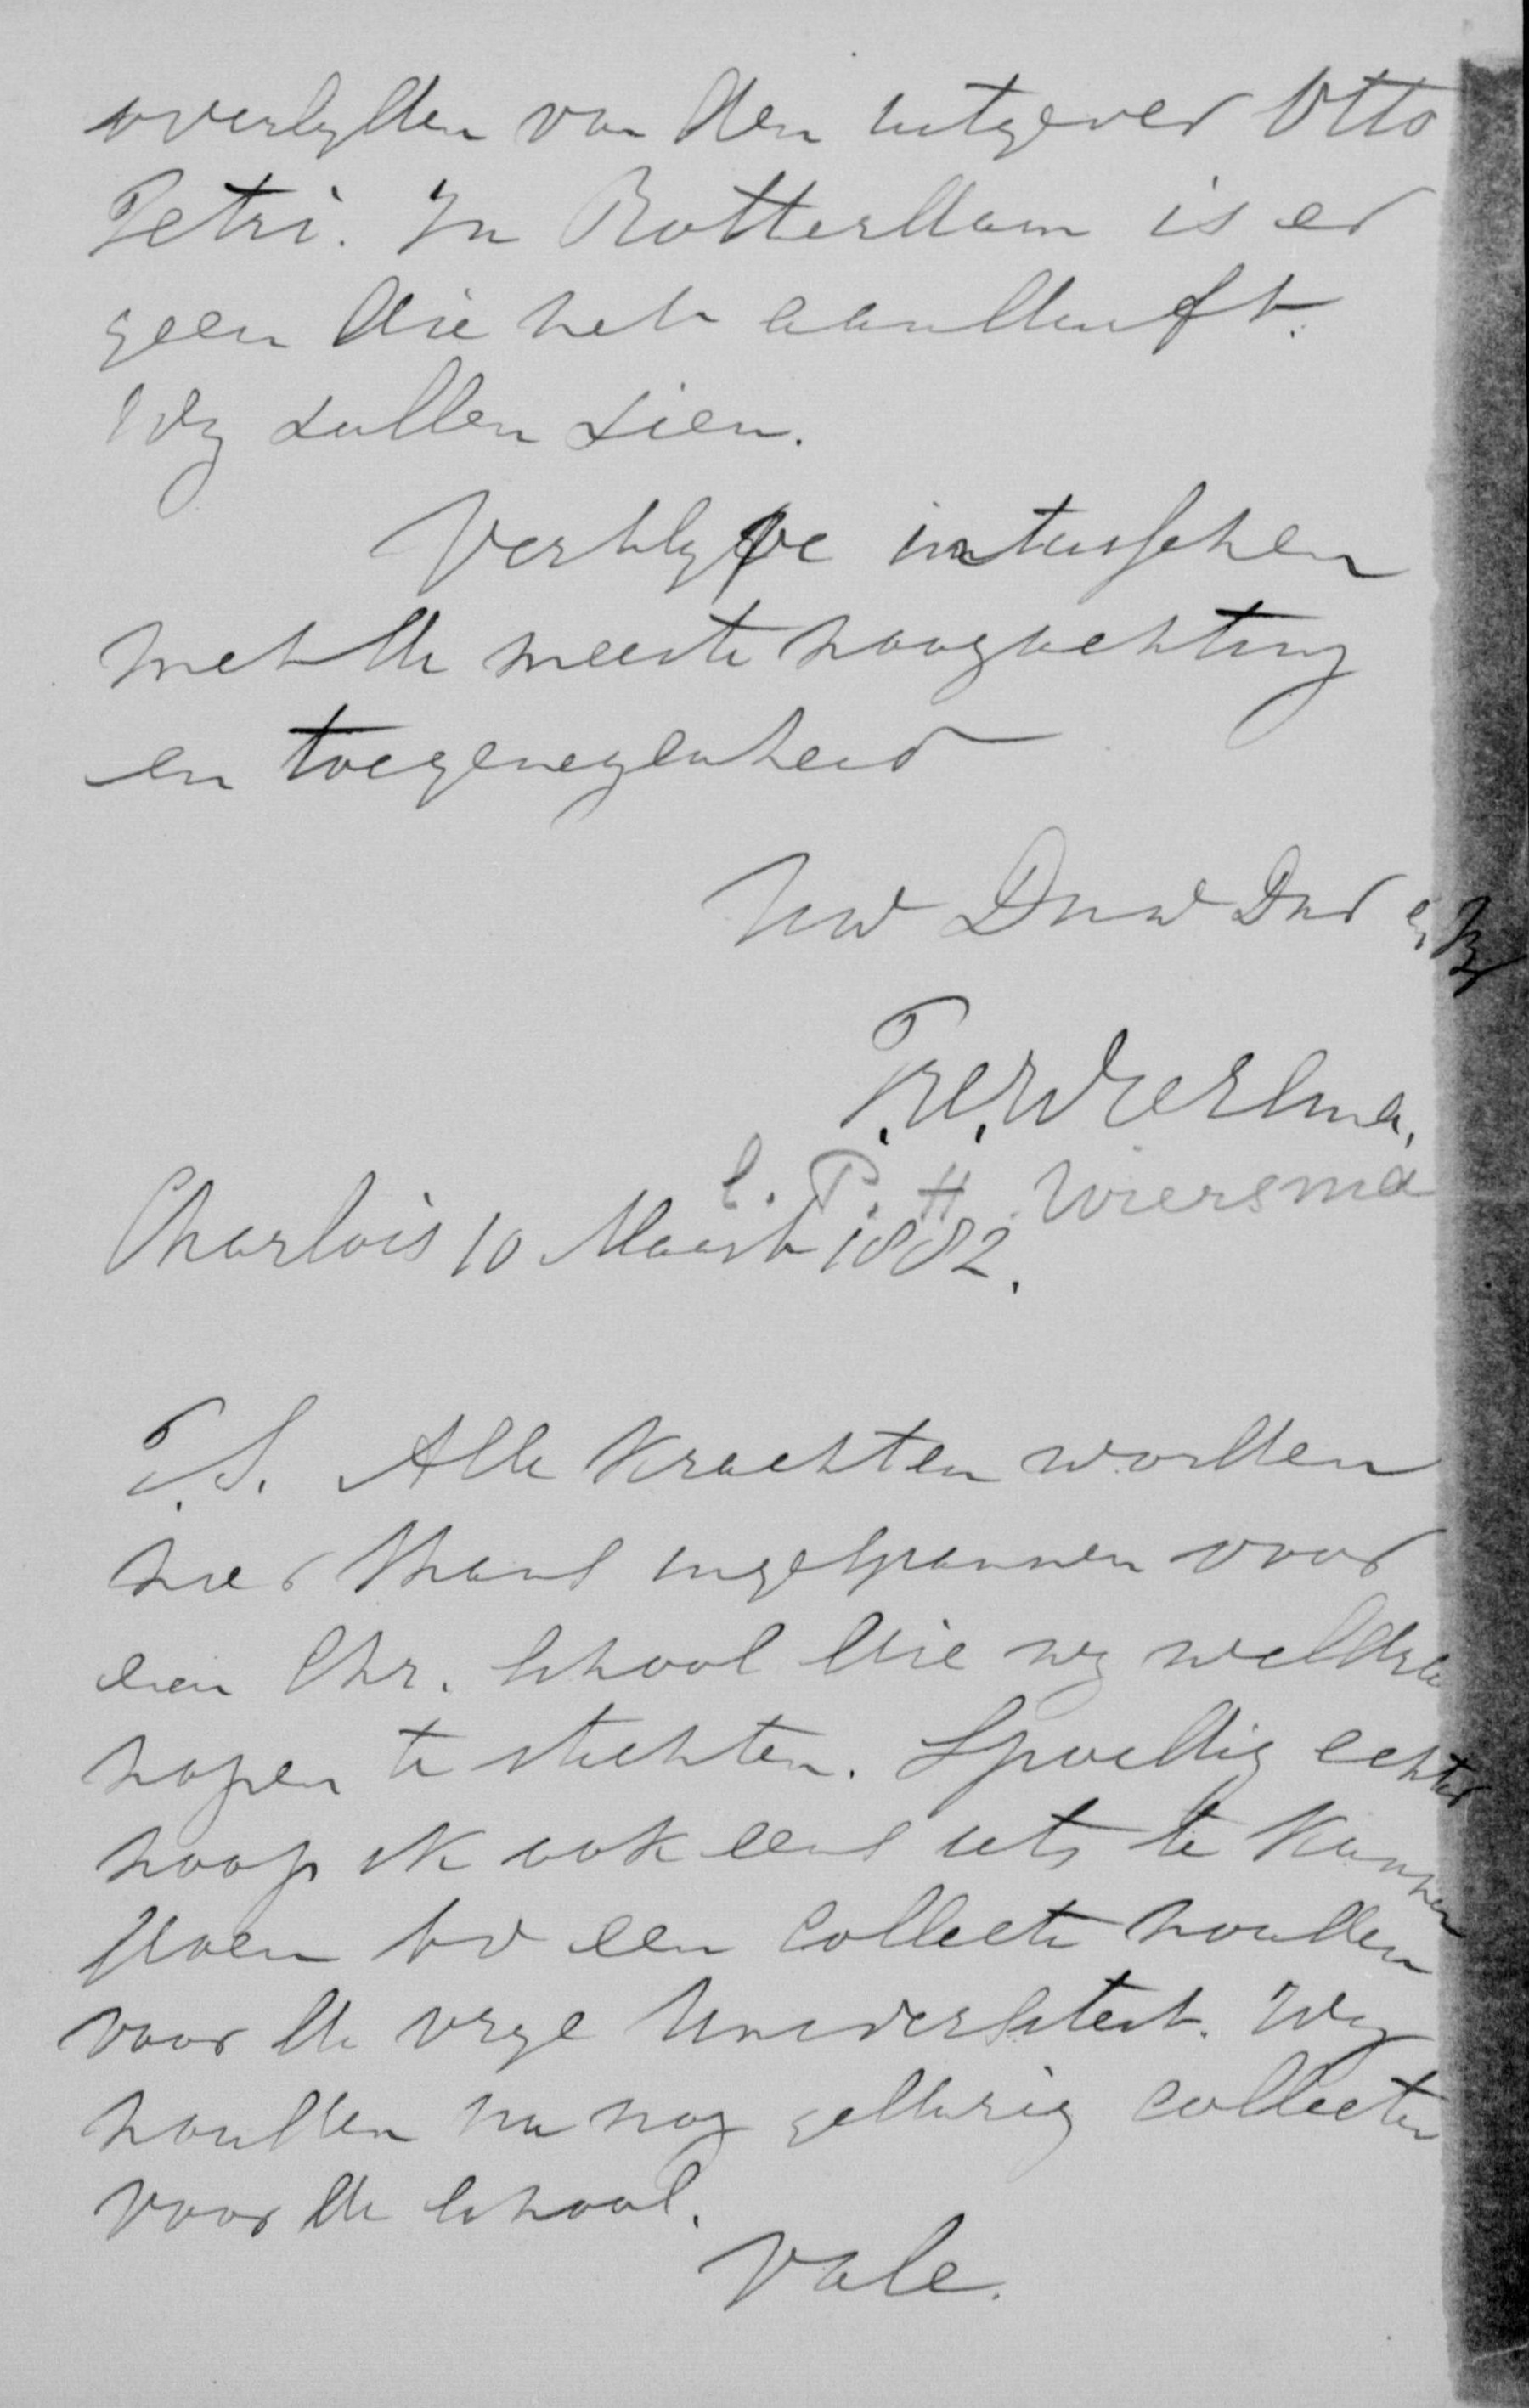 overlyden van den uitgever Otto
Petri. In Rotterdam is er
geen die het aandurft.
Wy zullen zien.
Verblyve intusschen
met de meeste hoogachting
en toegenegenheid
Uw Dnw Dnr en Br
P.H. Wiersma.
C. P. H. Wiersma
Charlois 10 Maart 1882.
P.S. Alle krachten worden
hier thans ingespannen voor
een Chr. school die wy weldra
hopen te stichten. Spoedig echter
hoop ik ook eens iets te kunnen
doen bv een collecte houden
voor de vrye Universiteit. Wy
houden nu nog gedurig collecten
voor de school.
Vale.